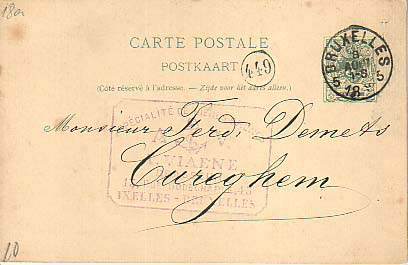 18a
CARTE POSTALE
POSTKAART
449
(Côté réservé à l'adresse. — Zijde voor het adres alleen.)
BRUXELLES 5
8
AOUT
5
18
SPÉCIALITÉ
VIAENE
IXELLES - BRUXELLES
Monsieur Ferd. Demets
Cureghem
10